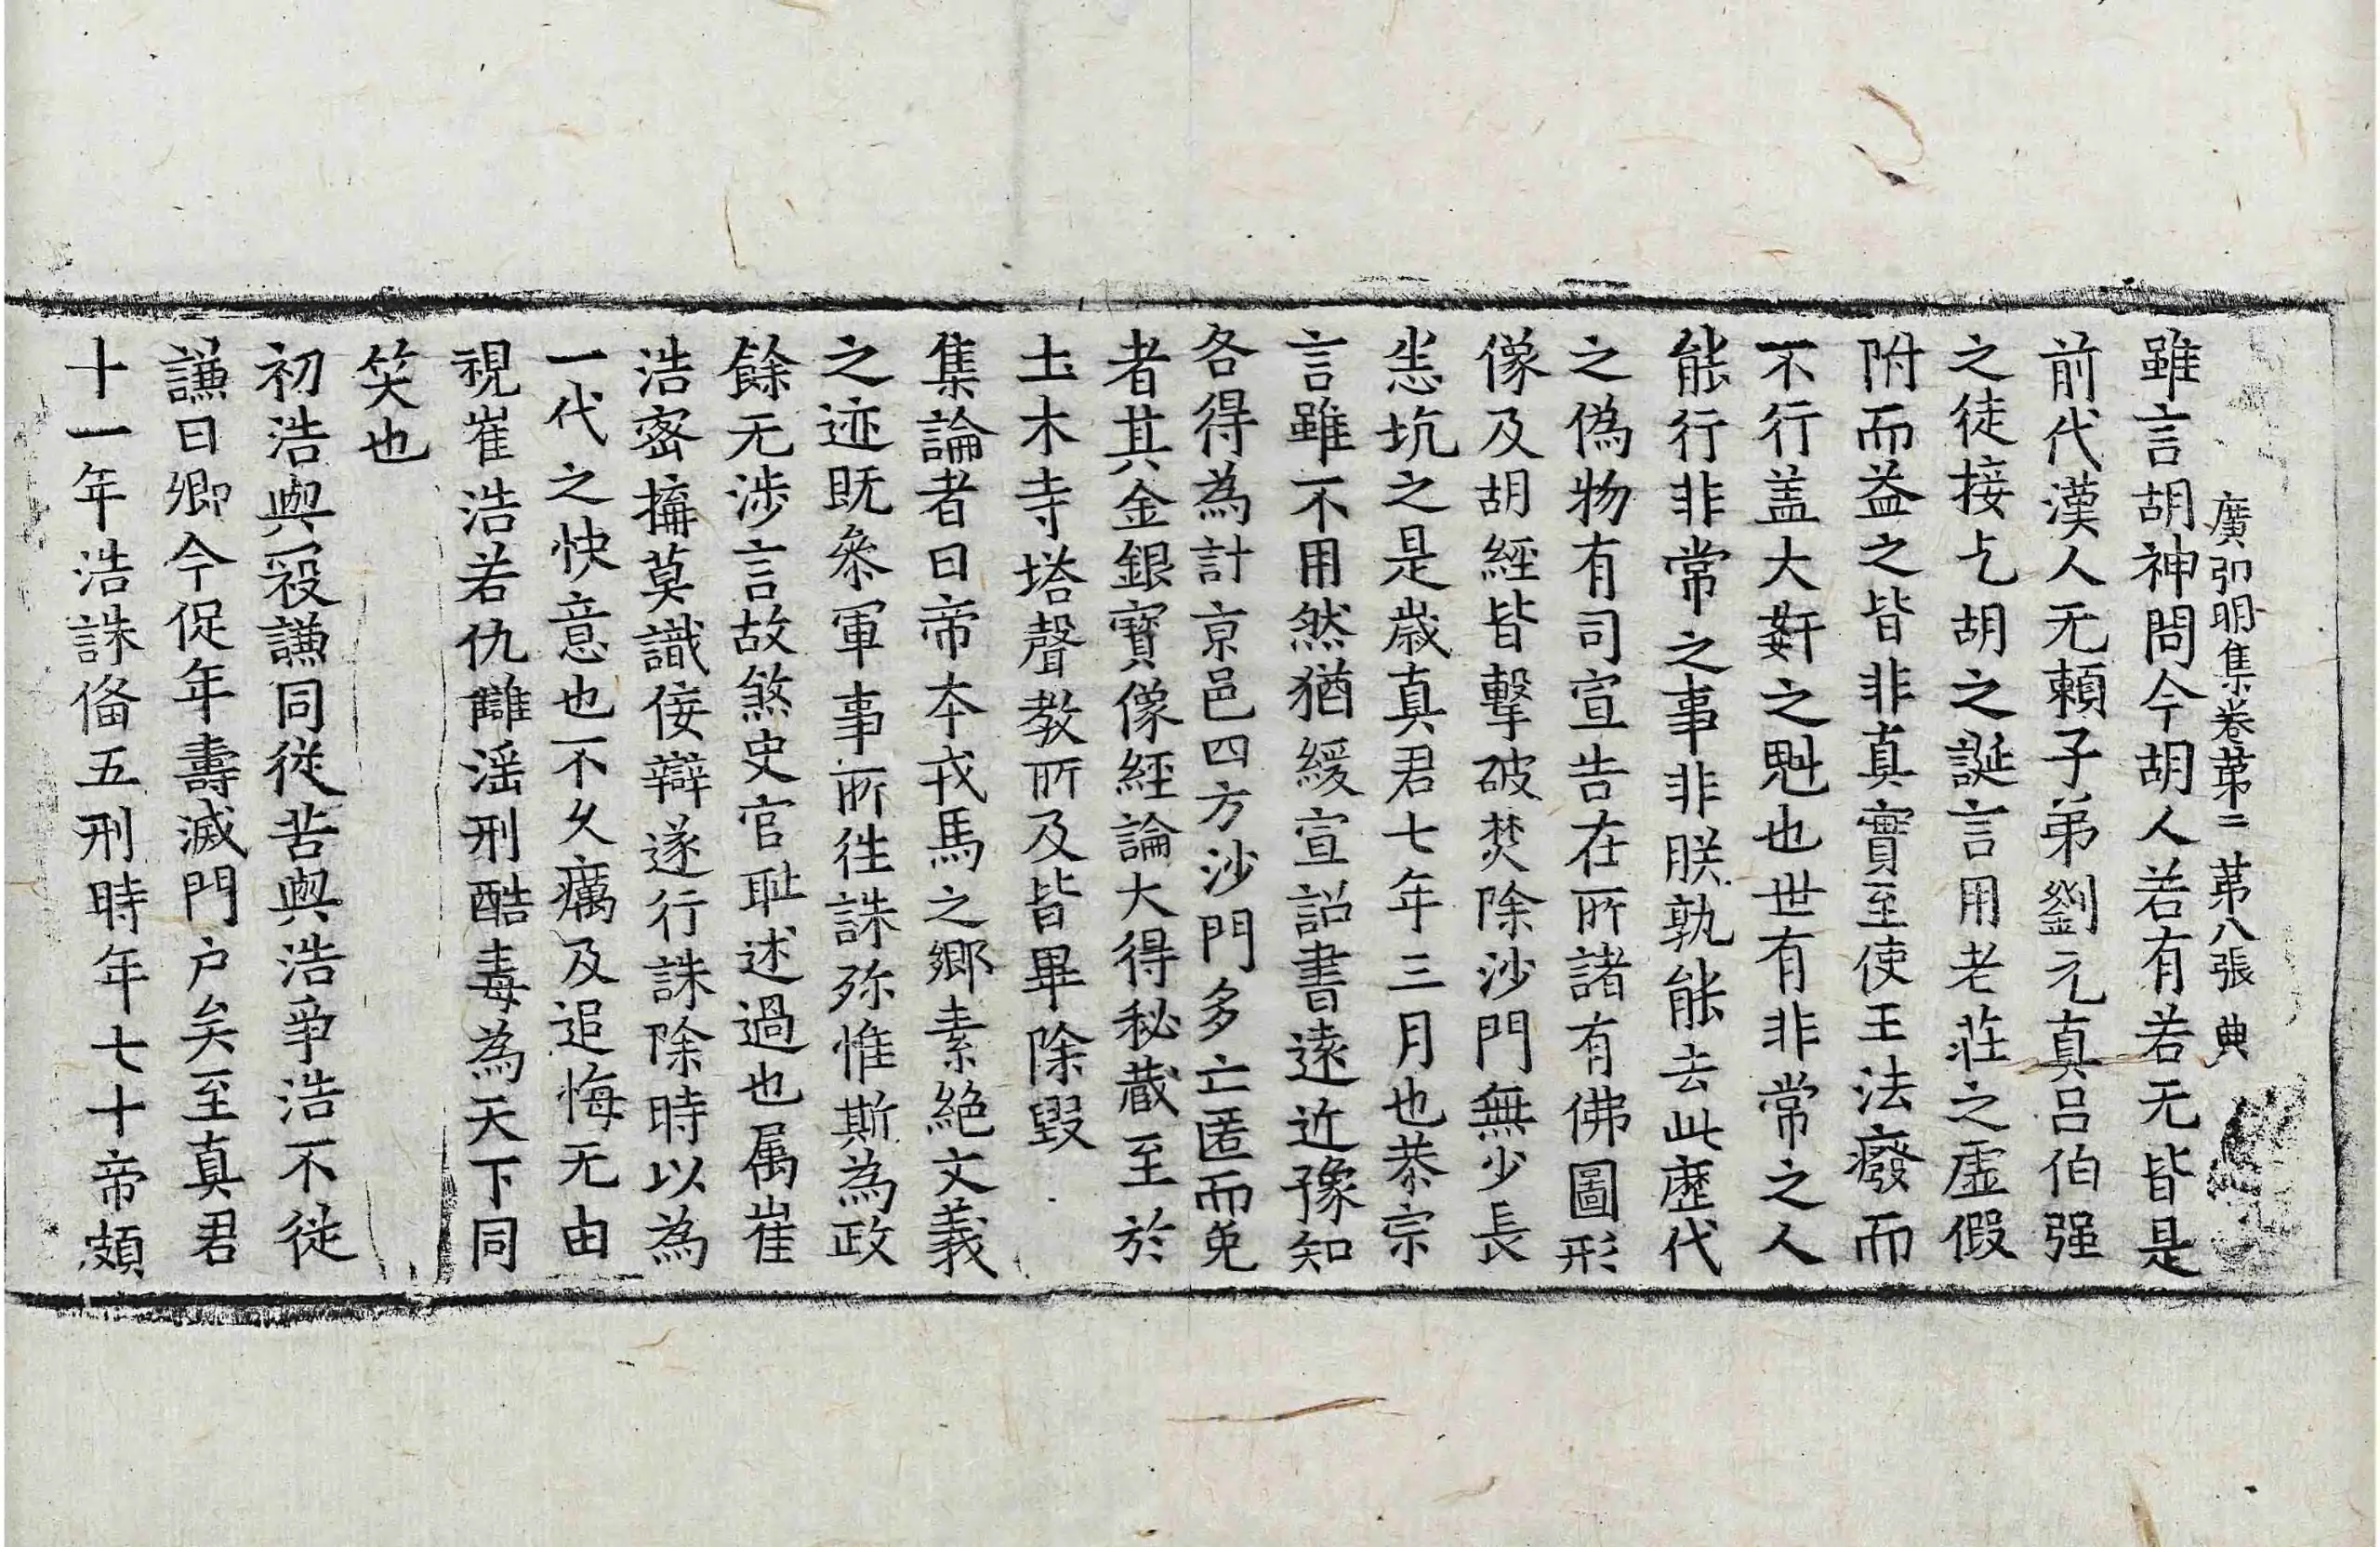 廣弘明集卷第二 第八張 典
雖言胡神問今胡人若有若无皆是
前代漢人无賴子弟劉元真呂伯强
之徒接乞胡之誕言用老莊之虛假
附而益之皆非真實至使王法癈而
不行盖大姧之魁也世有非常之人
能行非常之事非朕孰能去此歷代
之偽物有司宣告在所諸有佛圖形
像及胡經皆擊破焚除沙門無少長
悉坑之是歲真君七年三月也恭宗
言雖不用然猶緩宣詔書遠近豫知
各得為計京邑四方沙門多亡匿而免
者其金銀寶像經論大得秘藏至於
土木寺塔聲教所及皆畢除毀
集論者曰帝本戎馬之鄉素絕文義
之迹既叅軍事所往誅殄惟斯為政
餘无涉言故煞史官耻述過也属崔
浩密搆莫識侫辯遂行誅除時以為
一代之快意也不久癘及追悔无由
視崔浩若仇讎滛刑酷毒為天下同
笑也
初浩與寇謙同從苦與浩爭浩不從
謙曰卿今促年壽滅門户矣至真君
十一年浩誅俻五刑時年七十帝頗